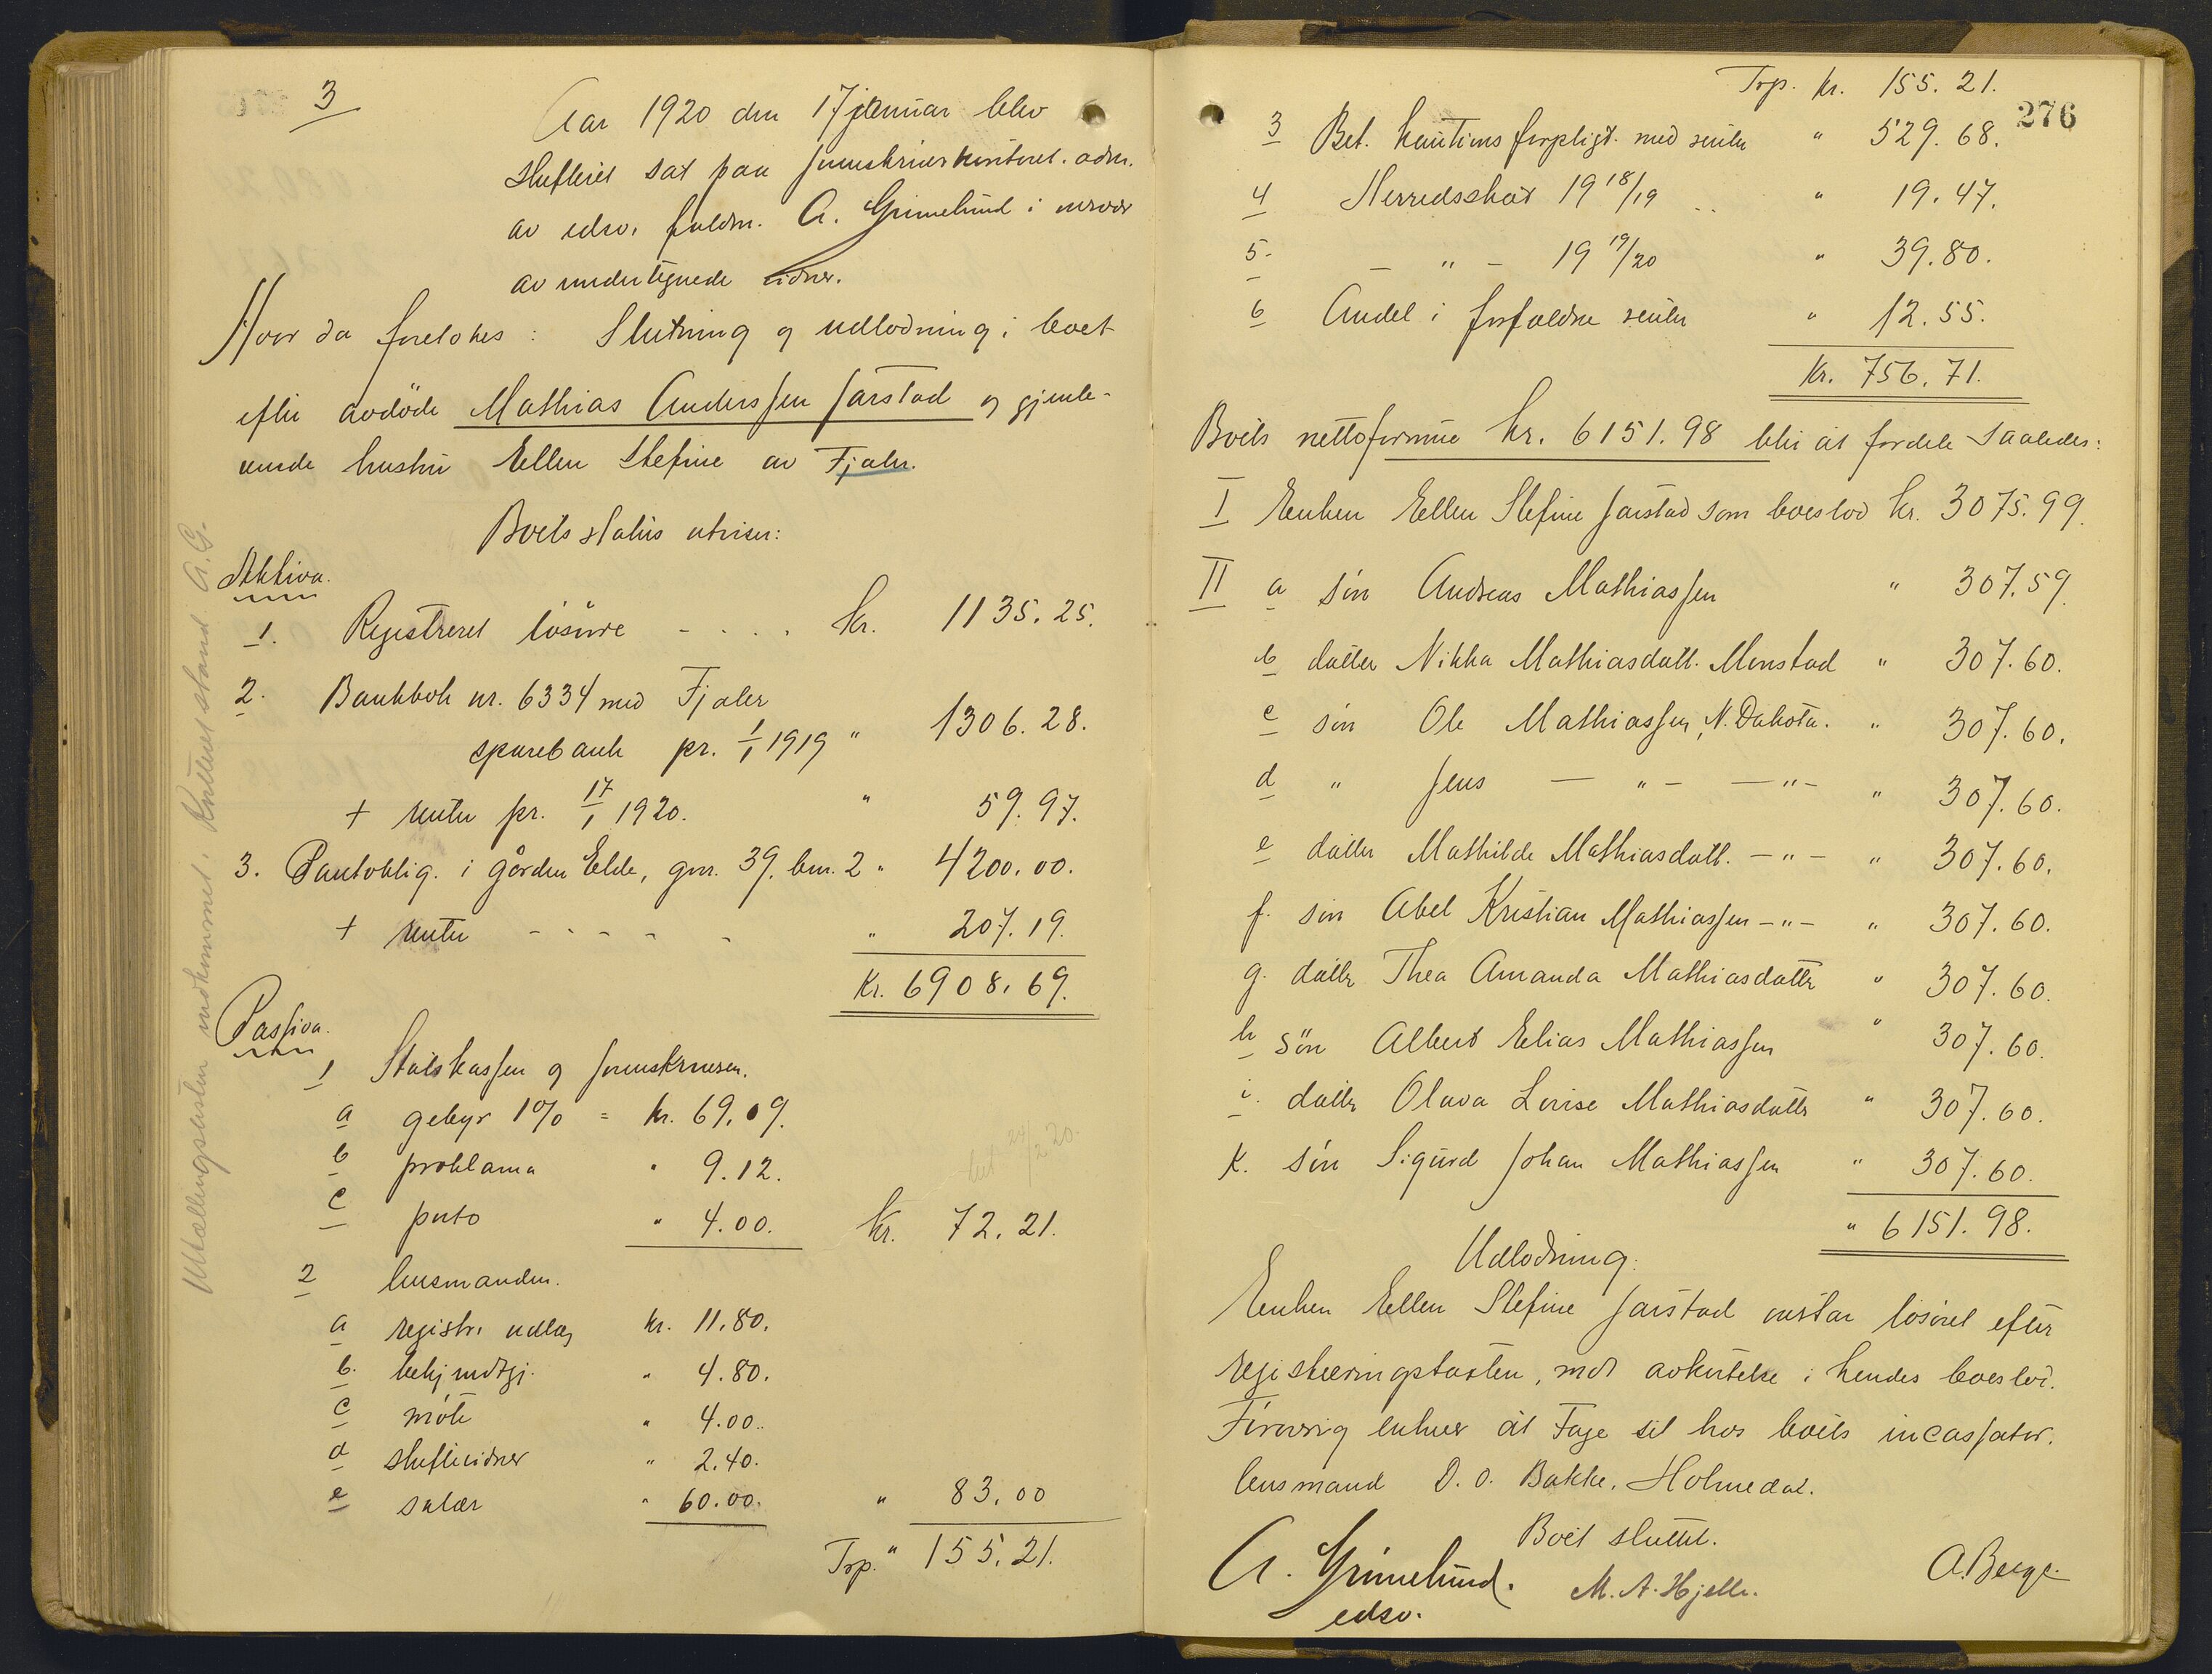 3
Aar 1920 den 17 januar blev
skifteret sat paa sorenskriverkontoret. adm.
av edsv. fuldm. A. Grimelund i nærvær
av undertegnede vidner.
Hvor da foretokes: Slutning og udlodning i boet
efter avdöde Mathias Anderssen Jarstad og gjenle-
vende hustru Ellen Stefine av Fjaler.
Boets status utviser:
Aktiva.
1. Registreret lösöre - . . . kr. 1135.25.
2. Bankbok nr. 6334 med Fjaler
sparebank pr. 1/1 1919 " 1306.28.
+ renter pr. 17/1 1920. " 59.97.
3. Pantoblig. i gården Elde, gnr. 39, bnr. 2 " 4200.00.
+ renter - - - - - " 207.19.
Kr. 6908.69.
Passiva.
1 Statskassen og sorenskriveren.
a gebyr 1% = kr. 69.09.
b proklama " 9.12.
bet 24/2 20.
c porto " 4.00. Kr. 72.21.
2 lensmanden.
a registr. udlæg kr. 11.80.
b. bekjendtgj. " 4.80.
c möte " 4.00.
d skiftevidner " 2.40.
e salær " 60.00. " 83.00
Trp. " 155.21.
Utællingslisten indkommet. Kvitteret stand A.G.
Trp. kr. 155.21.
276
3 Bet. kautionsforpligt. med renter " 529.68.
4 Herredsskat 1918/19 .. " 19.47.
5. - " - 1919/20 " 39.80.
6 Andel i forfaldne renter " 12.55.
Kr. 756.71.
Boets nettoformue kr. 6151.98 blir at fordele saaledes:
I Enken Ellen Stefine Jarstad som boeslod kr. 3075.99.
II a sön Andreas Mathiassen " 307.59.
b datter Nikka Mathiasdatt. Menstad " 307.60.
c sön Ole Mathiassen, N. Dakota. " 307.60.
d " Jens — " — — " — " 307.60.
e datter Mathilde Mathiasdatt. - " - " 307.60.
f. sön Abel Kristian Mathiassen - " - " 307.60.
g. datter Thea Amanda Mathiasdatter " 307.60.
h sön Albert Elias Mathiassen " 307.60.
i. datter Olava Lovise Mathiasdatter " 307.60.
k. sön Sigurd Johan Mathiassen " 307.60.
" 6151.98.
Udlodning.
Enken Ellen Stefine Jarstad overtar lösöret efter
registreringstaxten, mot avkortelse i hendes boeslod.
Forövrig enhver at tage sit hos boets incassator.
lensmand D. O. Bakke, Holmedal.
Boet sluttet.
A. Grimelund. M. A. Hjelle. A. Berge
edsv.